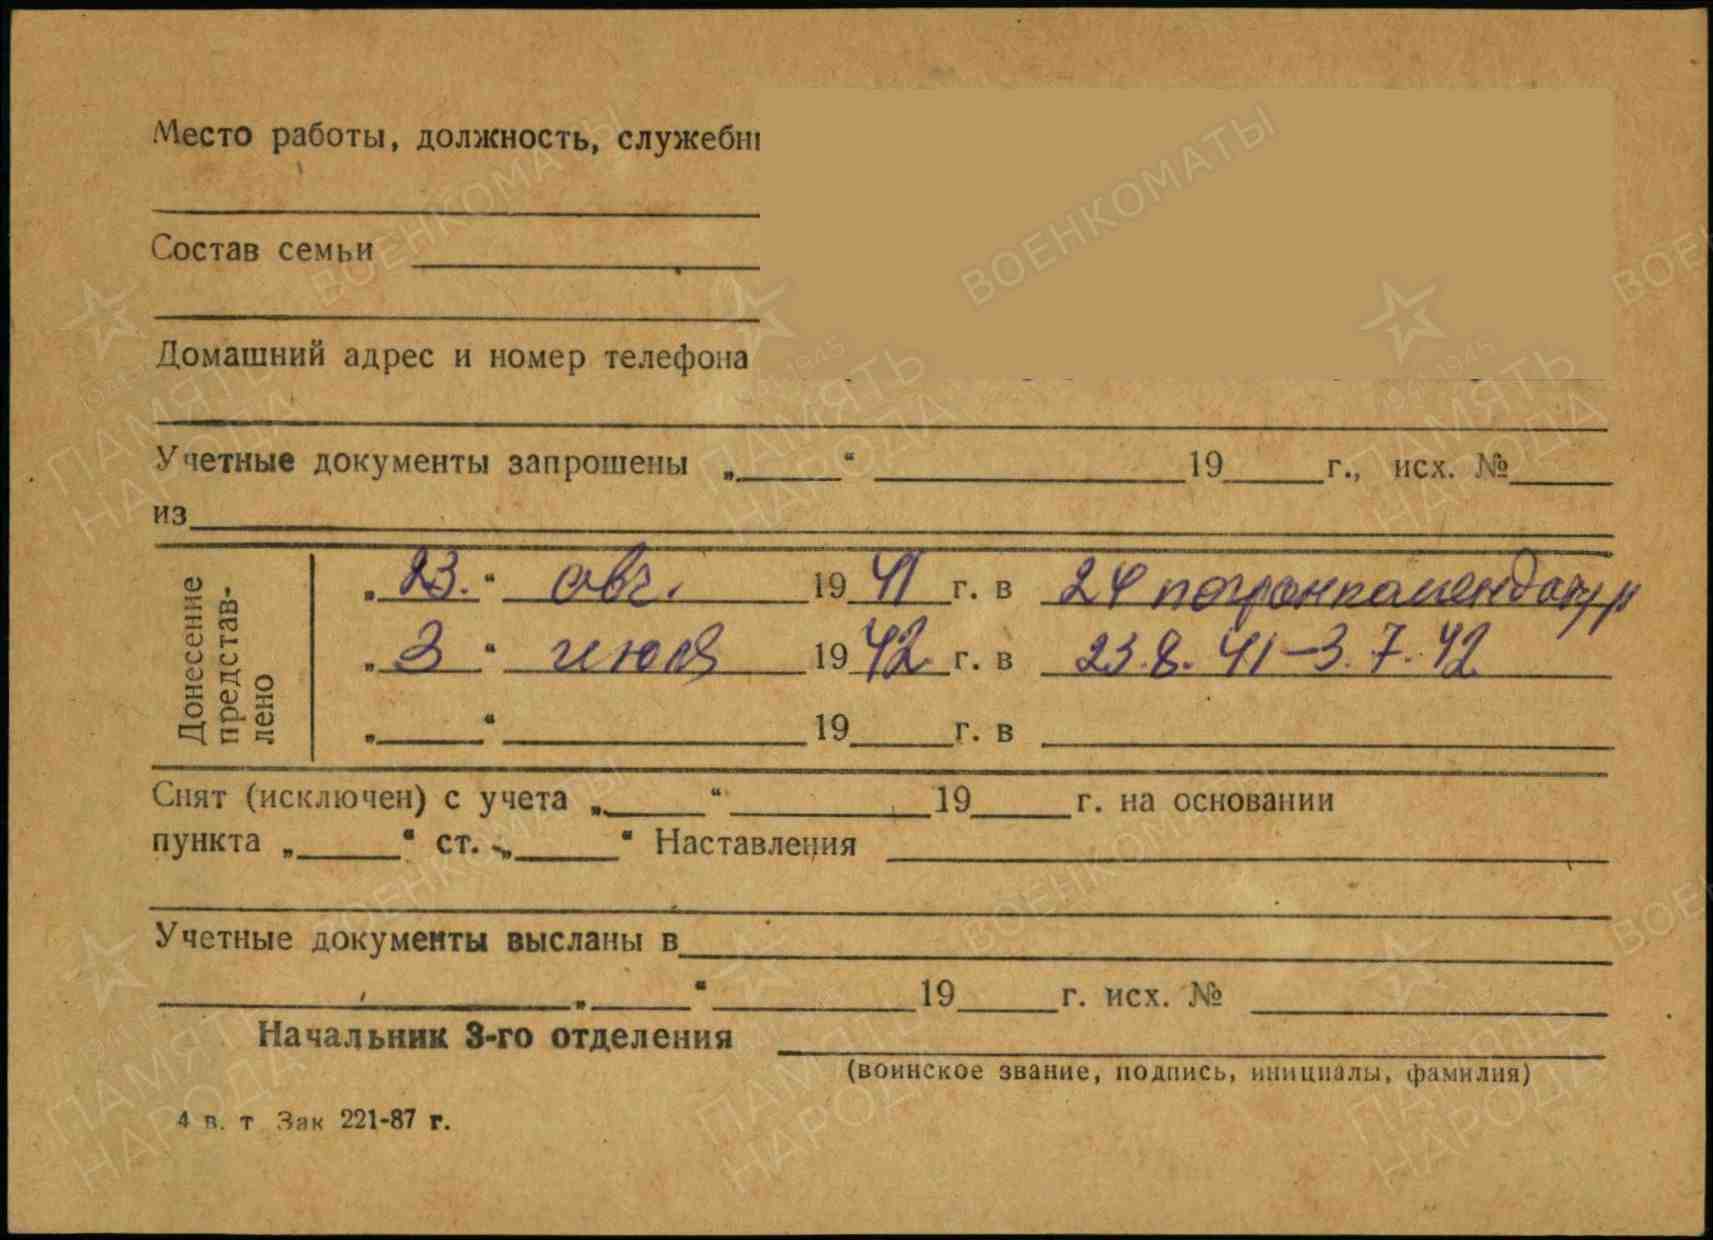 Место работы, должность, служебн
Состав семьи
Домашний адрес и номер телефона
Учетные документы запрошены „ “ 19 г., исх. №
из
Донесение представ-лено
„23.“ авг. 1941 г. в 24 погранкомендатур
„3“ июля 1942 г. в 23.8.41–3.7.42
„ “ 19 г. в
Снят (исключен) с учета „ “ 19 г. на основании
пункта „ “ ст. „ “ Наставления
Учетные документы высланы в
„ “ 19 г. исх. №
Начальник 3-го отделения
(воинское звание, подпись, инициалы, фамилия)
4 в. т Зак 221-87 г.
ВОЕНКОМАТЫ
1941-1945
ПАМЯТЬ
НАРОДА